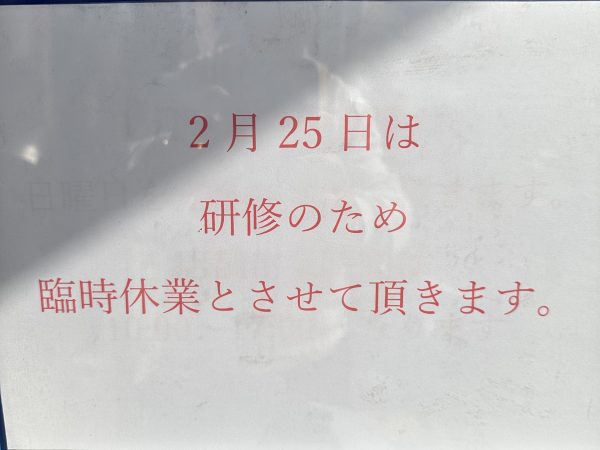 2月25日は
研修のため
臨時休業とさせて頂きます。